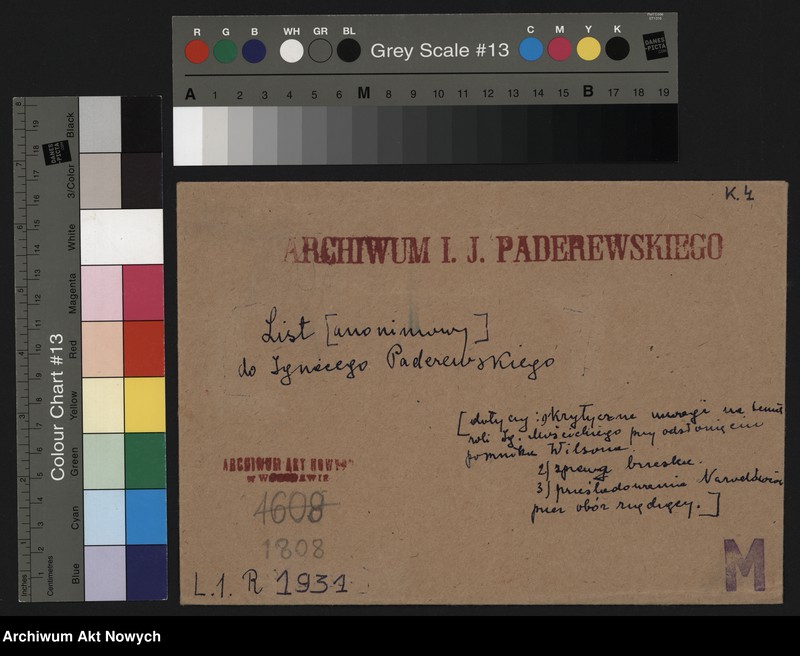 R G B WH GR BL Grey Scale #13 C M Y K
DANES
PICTA
.COM
A 1 2 3 4 5 6 M 8 9 10 11 12 13 14 15 B 17 18 19
Colour Chart #13
Blue Cyan Green Yellow Red Magenta White 3/Color Black
Inches
Centimetres
K. 4
ARCHIWUM I. J. PADEREWSKIEGO
List [anonimowy]
do Ignacego Paderewskiego
[dotyczy: 1) krytyczne uwagi na temat
roli Ig. Mościckiego przy odsłonięciu
pomnika Wilsona.
2) sprawa brzeska.
3) prześladowania Narodowców
przez obóz rządzący.]
ARCHIWUM AKT NOWYCH
w WARSZAWIE
4608
1808
L.1. R 1931
M
Archiwum Akt Nowych